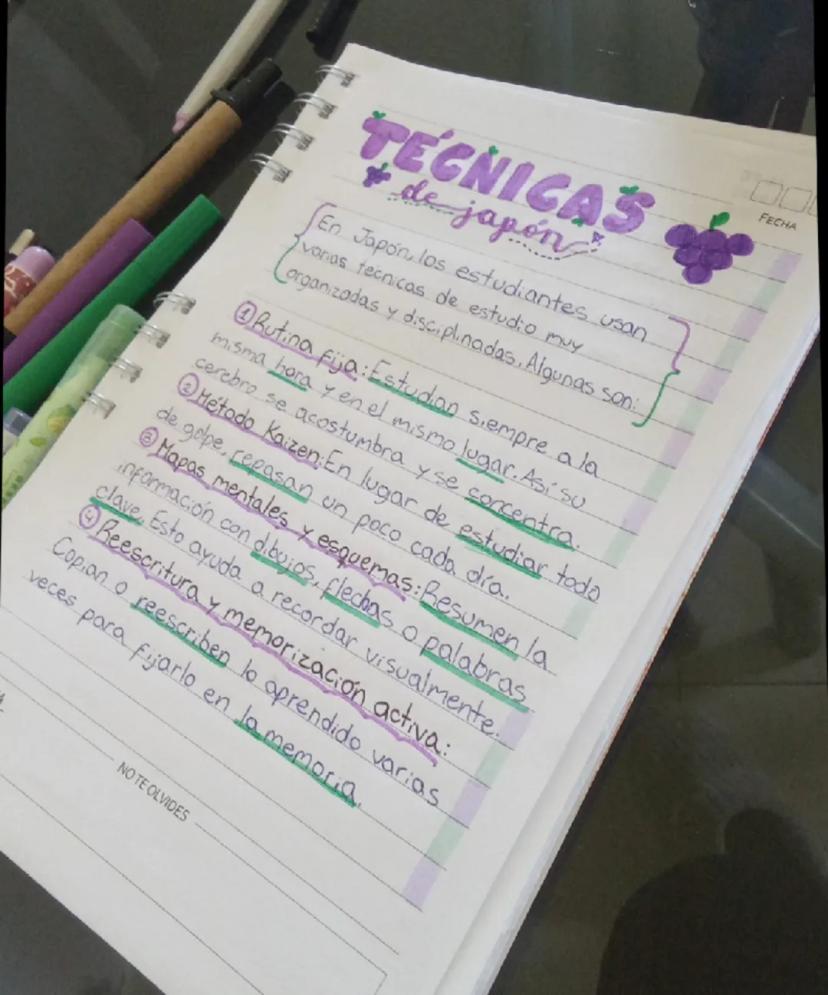 TÉCNICAS
de japón
FECHA
En Japón, los estudiantes usan
varias tecnicas de estudio muy
organizadas y disciplinadas. Algunas son:
① Rutina fija: Estudian siempre a la
misma hora y en el mismo lugar. Así su
cerebro se acostumbra y se concentra.
② Método Kaizen: En lugar de estudiar todo
de golpe, repasan un poco cada día.
③ Mapas mentales y esquemas: Resumen la
información con dibujos, flechas o palabras
clave. Esto ayuda a recordar visualmente.
④ Reescritura y memorización activa:
Copian o reescriben lo aprendido varias
veces para fijarlo en la memoria.
NO TE OLVIDES